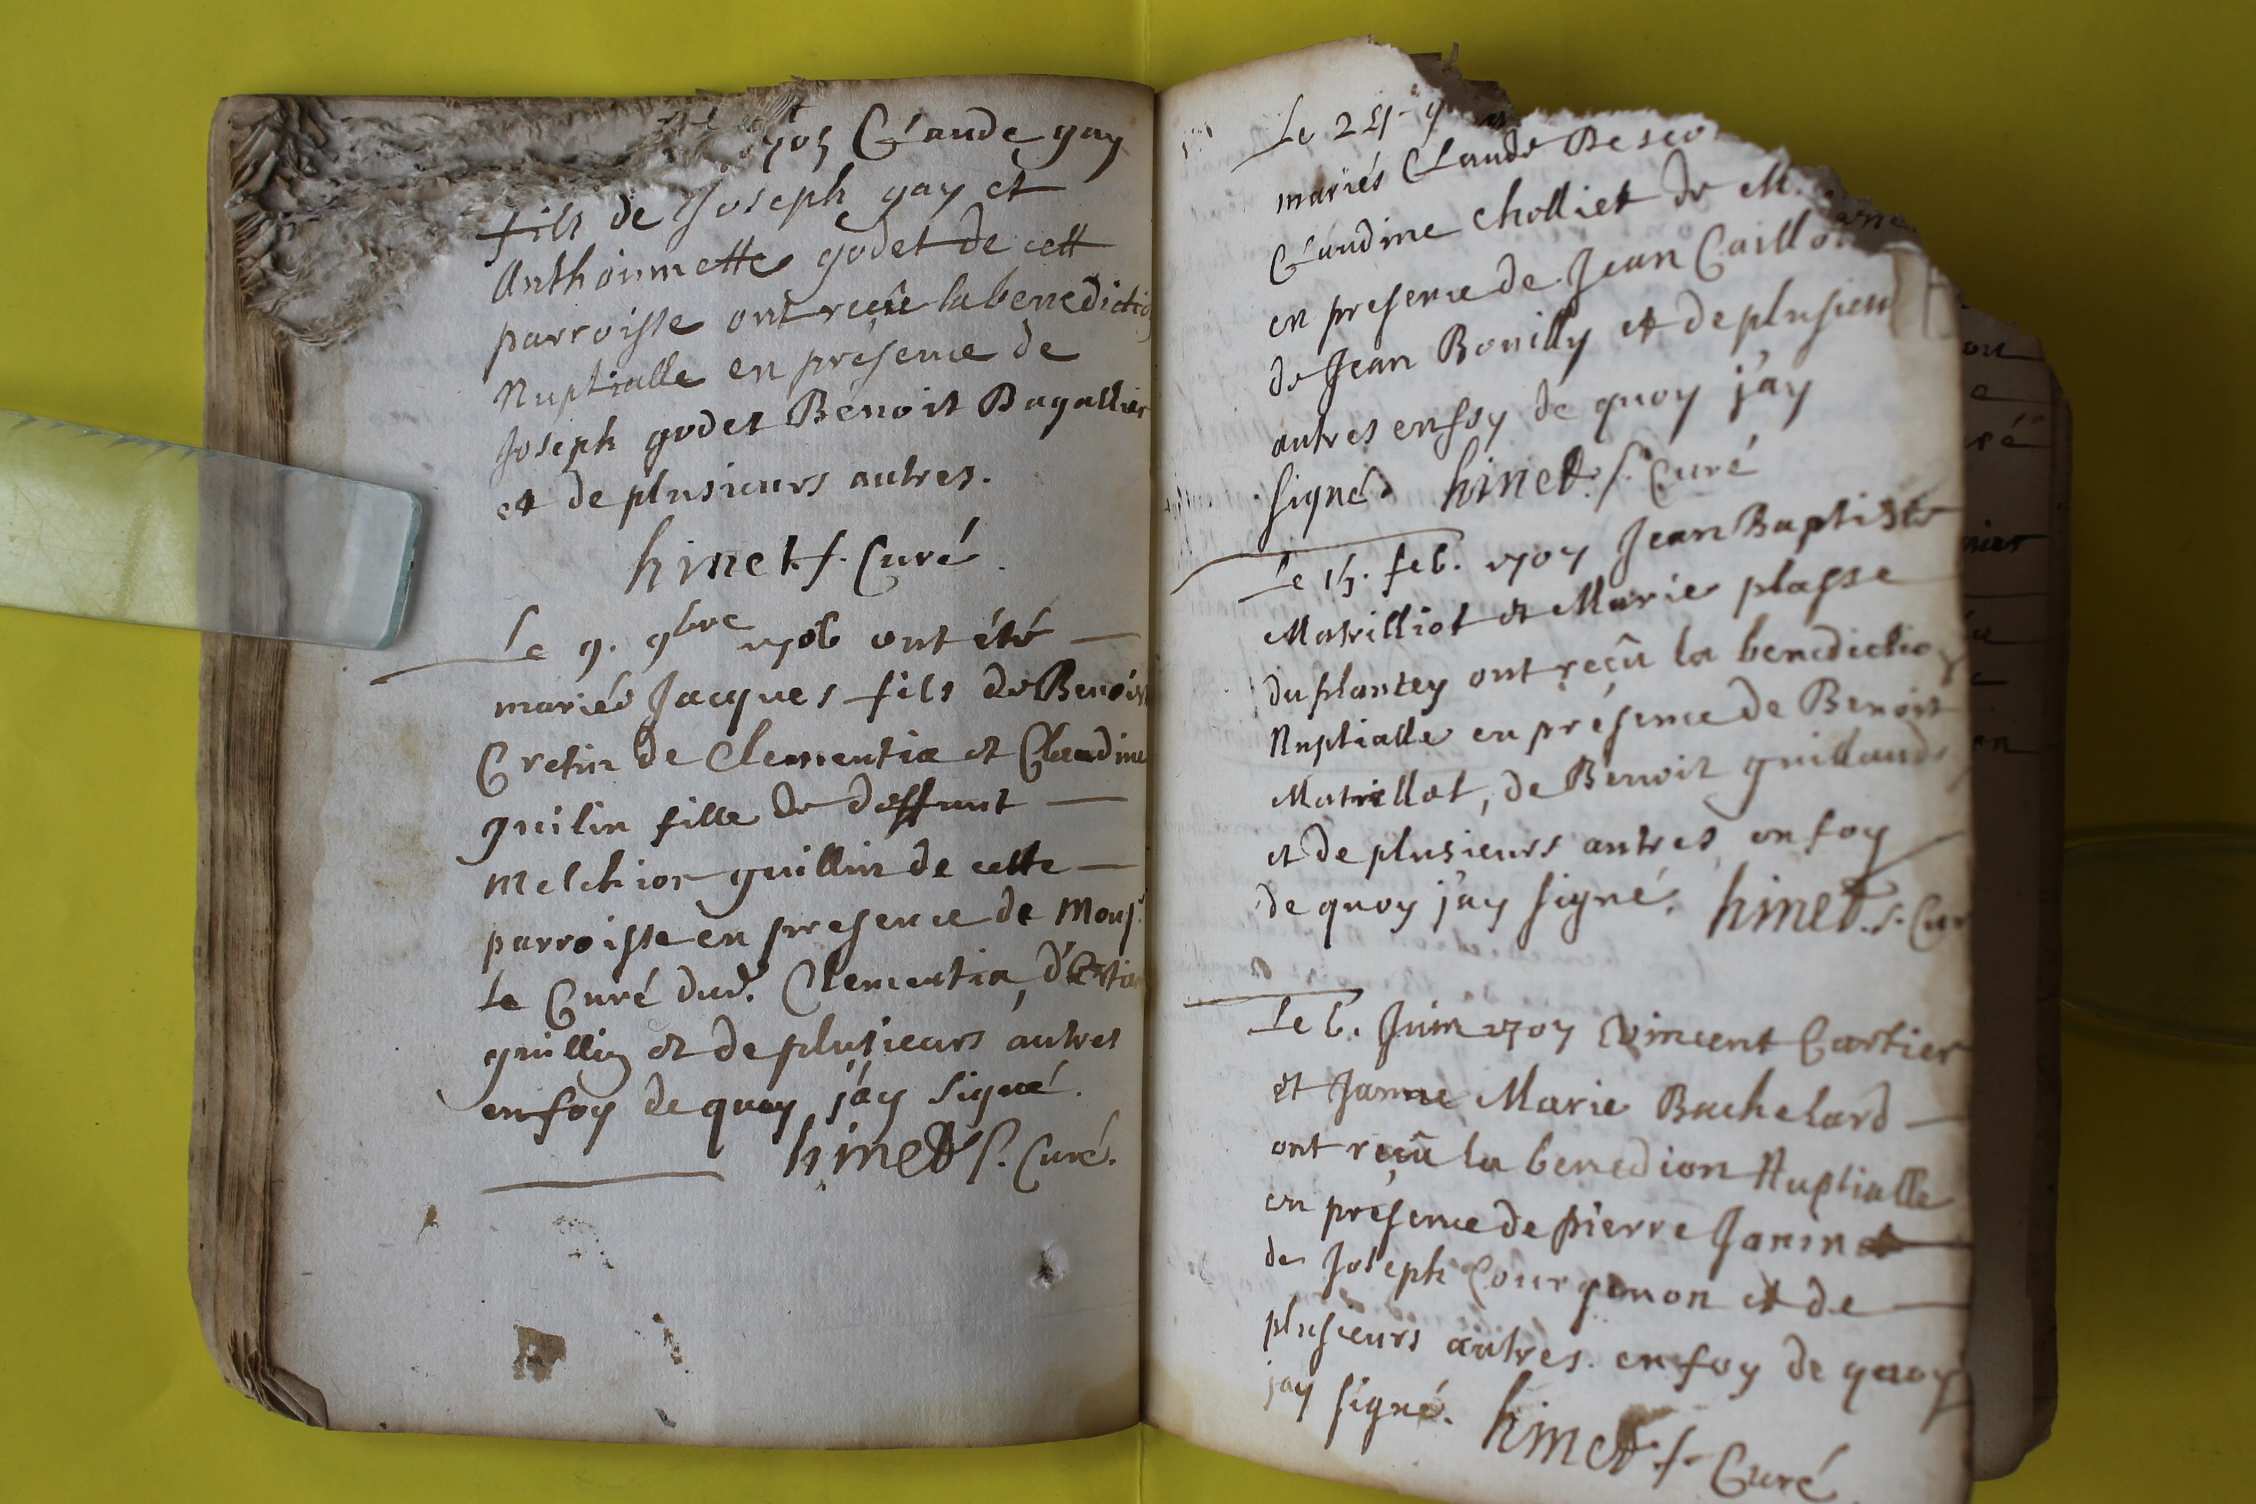 1705 Claude gay
fils de Joseph gay et
Anthoinnette godet de cett
parroisse ont reçû la benedictio
Nuptialle en presence de
Joseph godet Benoit Bagallier
et de plusieurs autres.
hinet. s. Curé
Le 9. 9bre 1706 ont été
mariés Jacques fils de Benoist
Cretin de Clementia et Claudine
guilin fille de deffunt
Melchior guillin de cette
parroisse en presence de Monsr
le Curé dud. Clementia, d'Estie
guillin et de plusieurs autres
en foy de quoy j'ay signé.
hinet s. Curé.
Le 25
mariés Claude Besco
Claudine Cholliet de M.
en presence de Jean Caillo
de Jean Bouilly et de plusieu
autres en foy de quoy j'ay
signé hinet. s. Curé
Le 15. feb. 1707 Jean Baptiste
Matrilliot et Marie plasse
du plantey ont reçû la benedictio
Nuptialle en présence de Benoit
Matrillot, de Benoit guillaud
et de plusieurs autres en foy
de quoy j'ay signé. hinet. s. Cur
Le 6. Juin 1707 Vincent Cartier
et Janne Marie Bachelard
ont reçû la benedion Nuptialle
en présence de pierre Janin et
de Joseph Courgenon et de
plusieurs autres. en foy de quoy
j'ay signé. hinet s. Curé